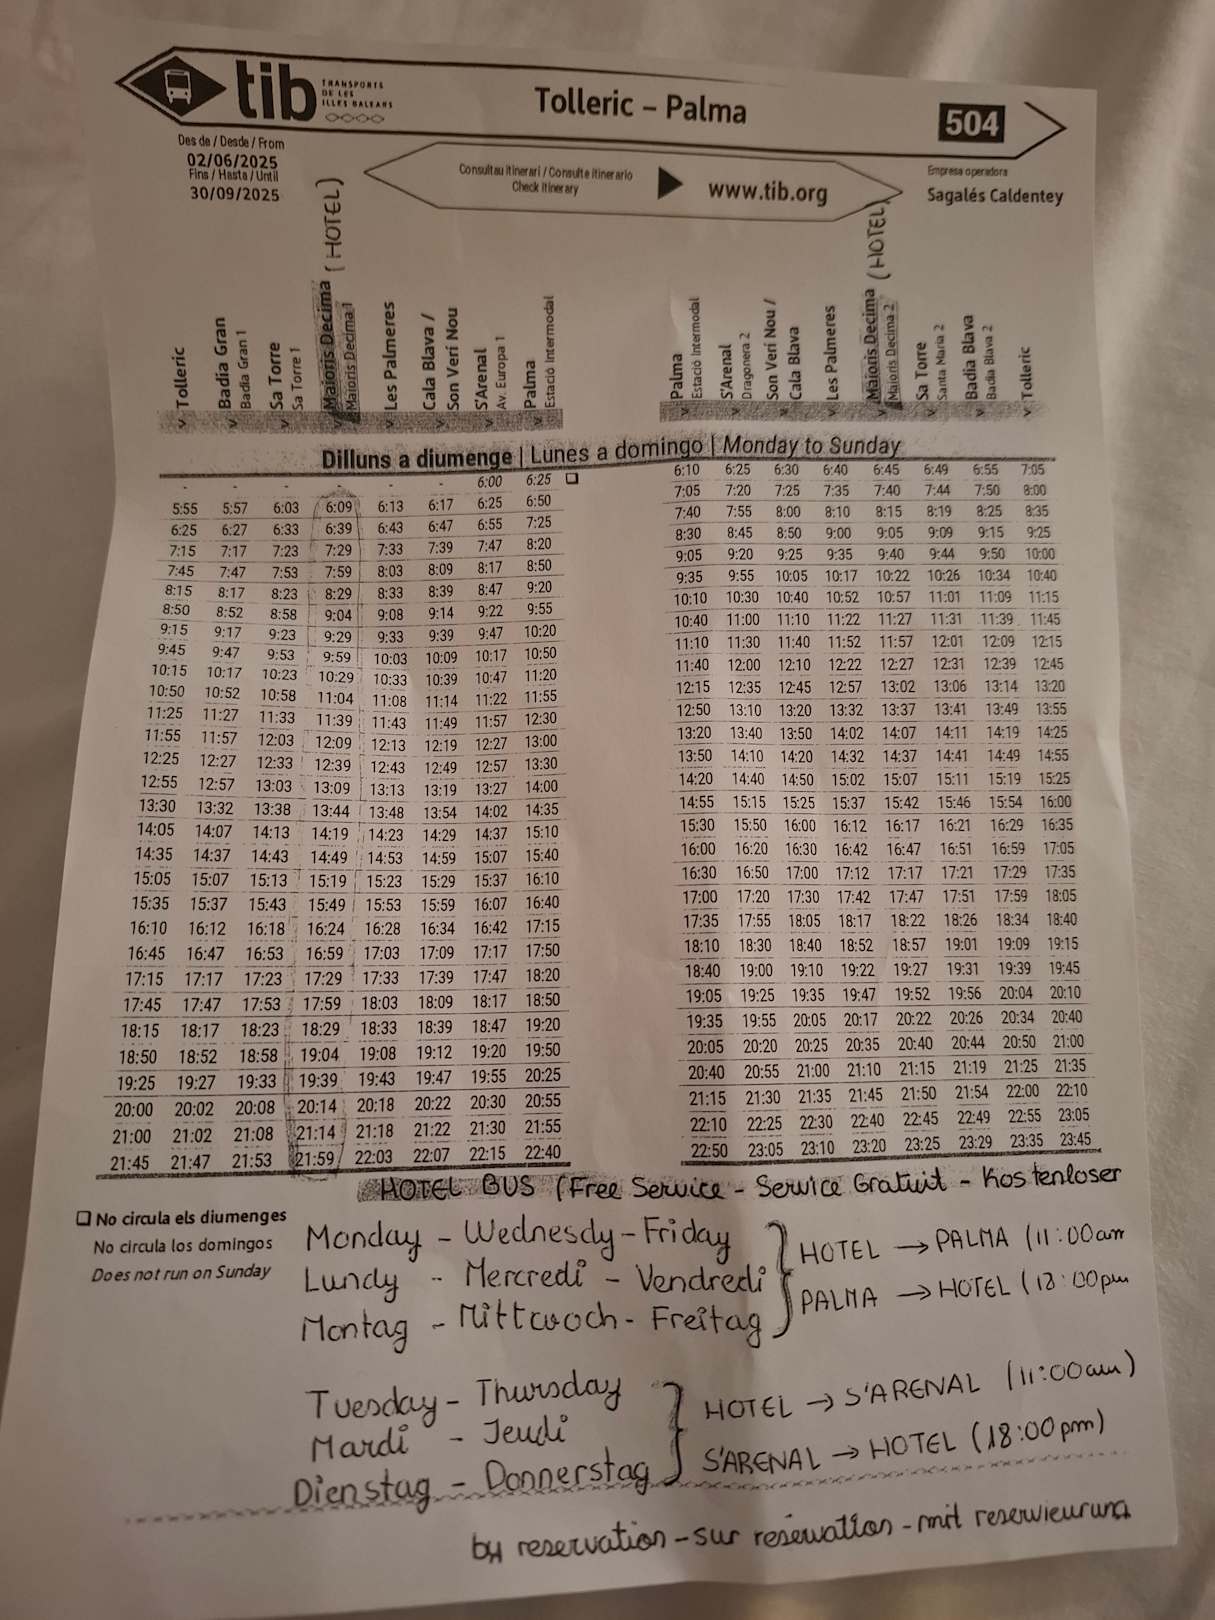 tib TRANSPORTS DE LES ILLES BALEARS
Tolleric – Palma
504
Des de / Desde / From
02/06/2025
Fins / Hasta / Until
30/09/2025
Consultau itinerari / Consulte itinerario
Check itinerary
www.tib.org
Empresa operadora
Sagalés Caldentey
Tolleric
Badia Gran
Badia Gran 1
Sa Torre
Sa Torre 1
Maioris Decima (HOTEL)
Maioris Decima 1
Les Palmeres
Cala Blava /
Son Verí Nou
S'Arenal
Av. Europa 1
Palma
Estació Intermodal
Palma
Estació Intermodal
S'Arenal
Dragonera 2
Son Verí Nou /
Cala Blava
Les Palmeres
Maioris Decima (HOTEL)
Maioris Decima 2
Sa Torre
Santa Maria 2
Badia Blava
Badia Blava 2
Tolleric
Dilluns a diumenge | Lunes a domingo | Monday to Sunday
- - - - - - 6:00 6:25 ❑
5:55 5:57 6:03 6:09 6:13 6:17 6:25 6:50
6:25 6:27 6:33 6:39 6:43 6:47 6:55 7:25
7:15 7:17 7:23 7:29 7:33 7:39 7:47 8:20
7:45 7:47 7:53 7:59 8:03 8:09 8:17 8:50
8:15 8:17 8:23 8:29 8:33 8:39 8:47 9:20
8:50 8:52 8:58 9:04 9:08 9:14 9:22 9:55
9:15 9:17 9:23 9:29 9:33 9:39 9:47 10:20
9:45 9:47 9:53 9:59 10:03 10:09 10:17 10:50
10:15 10:17 10:23 10:29 10:33 10:39 10:47 11:20
10:50 10:52 10:58 11:04 11:08 11:14 11:22 11:55
11:25 11:27 11:33 11:39 11:43 11:49 11:57 12:30
11:55 11:57 12:03 12:09 12:13 12:19 12:27 13:00
12:25 12:27 12:33 12:39 12:43 12:49 12:57 13:30
12:55 12:57 13:03 13:09 13:13 13:19 13:27 14:00
13:30 13:32 13:38 13:44 13:48 13:54 14:02 14:35
14:05 14:07 14:13 14:19 14:23 14:29 14:37 15:10
14:35 14:37 14:43 14:49 14:53 14:59 15:07 15:40
15:05 15:07 15:13 15:19 15:23 15:29 15:37 16:10
15:35 15:37 15:43 15:49 15:53 15:59 16:07 16:40
16:10 16:12 16:18 16:24 16:28 16:34 16:42 17:15
16:45 16:47 16:53 16:59 17:03 17:09 17:17 17:50
17:15 17:17 17:23 17:29 17:33 17:39 17:47 18:20
17:45 17:47 17:53 17:59 18:03 18:09 18:17 18:50
18:15 18:17 18:23 18:29 18:33 18:39 18:47 19:20
18:50 18:52 18:58 19:04 19:08 19:12 19:20 19:50
19:25 19:27 19:33 19:39 19:43 19:47 19:55 20:25
20:00 20:02 20:08 20:14 20:18 20:22 20:30 20:55
21:00 21:02 21:08 21:14 21:18 21:22 21:30 21:55
21:45 21:47 21:53 21:59 22:03 22:07 22:15 22:40
6:10 6:25 6:30 6:40 6:45 6:49 6:55 7:05
7:05 7:20 7:25 7:35 7:40 7:44 7:50 8:00
7:40 7:55 8:00 8:10 8:15 8:19 8:25 8:35
8:30 8:45 8:50 9:00 9:05 9:09 9:15 9:25
9:05 9:20 9:25 9:35 9:40 9:44 9:50 10:00
9:35 9:55 10:05 10:17 10:22 10:26 10:34 10:40
10:10 10:30 10:40 10:52 10:57 11:01 11:09 11:15
10:40 11:00 11:10 11:22 11:27 11:31 11:39 11:45
11:10 11:30 11:40 11:52 11:57 12:01 12:09 12:15
11:40 12:00 12:10 12:22 12:27 12:31 12:39 12:45
12:15 12:35 12:45 12:57 13:02 13:06 13:14 13:20
12:50 13:10 13:20 13:32 13:37 13:41 13:49 13:55
13:20 13:40 13:50 14:02 14:07 14:11 14:19 14:25
13:50 14:10 14:20 14:32 14:37 14:41 14:49 14:55
14:20 14:40 14:50 15:02 15:07 15:11 15:19 15:25
14:55 15:15 15:25 15:37 15:42 15:46 15:54 16:00
15:30 15:50 16:00 16:12 16:17 16:21 16:29 16:35
16:00 16:20 16:30 16:42 16:47 16:51 16:59 17:05
16:30 16:50 17:00 17:12 17:17 17:21 17:29 17:35
17:00 17:20 17:30 17:42 17:47 17:51 17:59 18:05
17:35 17:55 18:05 18:17 18:22 18:26 18:34 18:40
18:10 18:30 18:40 18:52 18:57 19:01 19:09 19:15
18:40 19:00 19:10 19:22 19:27 19:31 19:39 19:45
19:05 19:25 19:35 19:47 19:52 19:56 20:04 20:10
19:35 19:55 20:05 20:17 20:22 20:26 20:34 20:40
20:05 20:20 20:25 20:35 20:40 20:44 20:50 21:00
20:40 20:55 21:00 21:10 21:15 21:19 21:25 21:35
21:15 21:30 21:35 21:45 21:50 21:54 22:00 22:10
22:10 22:25 22:30 22:40 22:45 22:49 22:55 23:05
22:50 23:05 23:10 23:20 23:25 23:29 23:35 23:45
HOTEL BUS (Free Service - Service Gratuit - Kostenloser
❑ No circula els diumenges
No circula los domingos
Does not run on Sunday
Monday - Wednesdy - Friday
Lundy - Mercredi - Vendredi
Montag - Mittwoch - Freitag
HOTEL → PALMA (11:00am
PALMA → HOTEL (18:00pm
Tuesday - Thursday
Mardi - Jeudi
Dienstag - Donnerstag
HOTEL → S'ARENAL (11:00am)
S'ARENAL → HOTEL (18:00pm)
by reservation - sur reservation - mit reservieurung